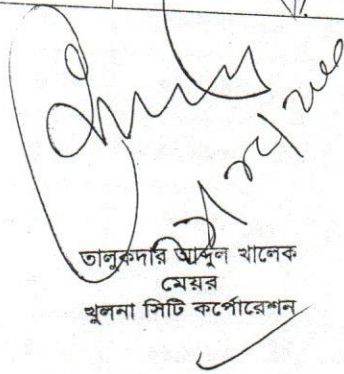 তালুকদার আব্দুল খালেক
মেয়র
খুলনা সিটি কর্পোরেশন